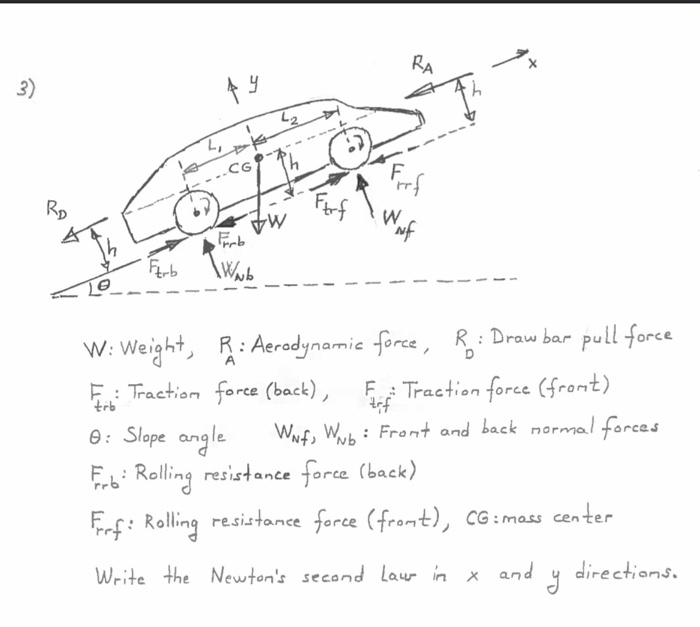 3)
y
R_A
x
h
L_2
L_1
CG
h
F_rrf
R_D
F_trf
W_Nf
W
h
F_rrb
F_trb
W_Nb
θ
W: Weight, R_A : Aerodynamic force, R_D : Draw bar pull force
F_trb : Traction force (back), F_trf : Traction force (front)
θ: Slope angle W_Nf, W_Nb : Front and back normal forces
F_rrb : Rolling resistance force (back)
F_rrf : Rolling resistance force (front), CG : mass center
Write the Newton's second Law in x and y directions.